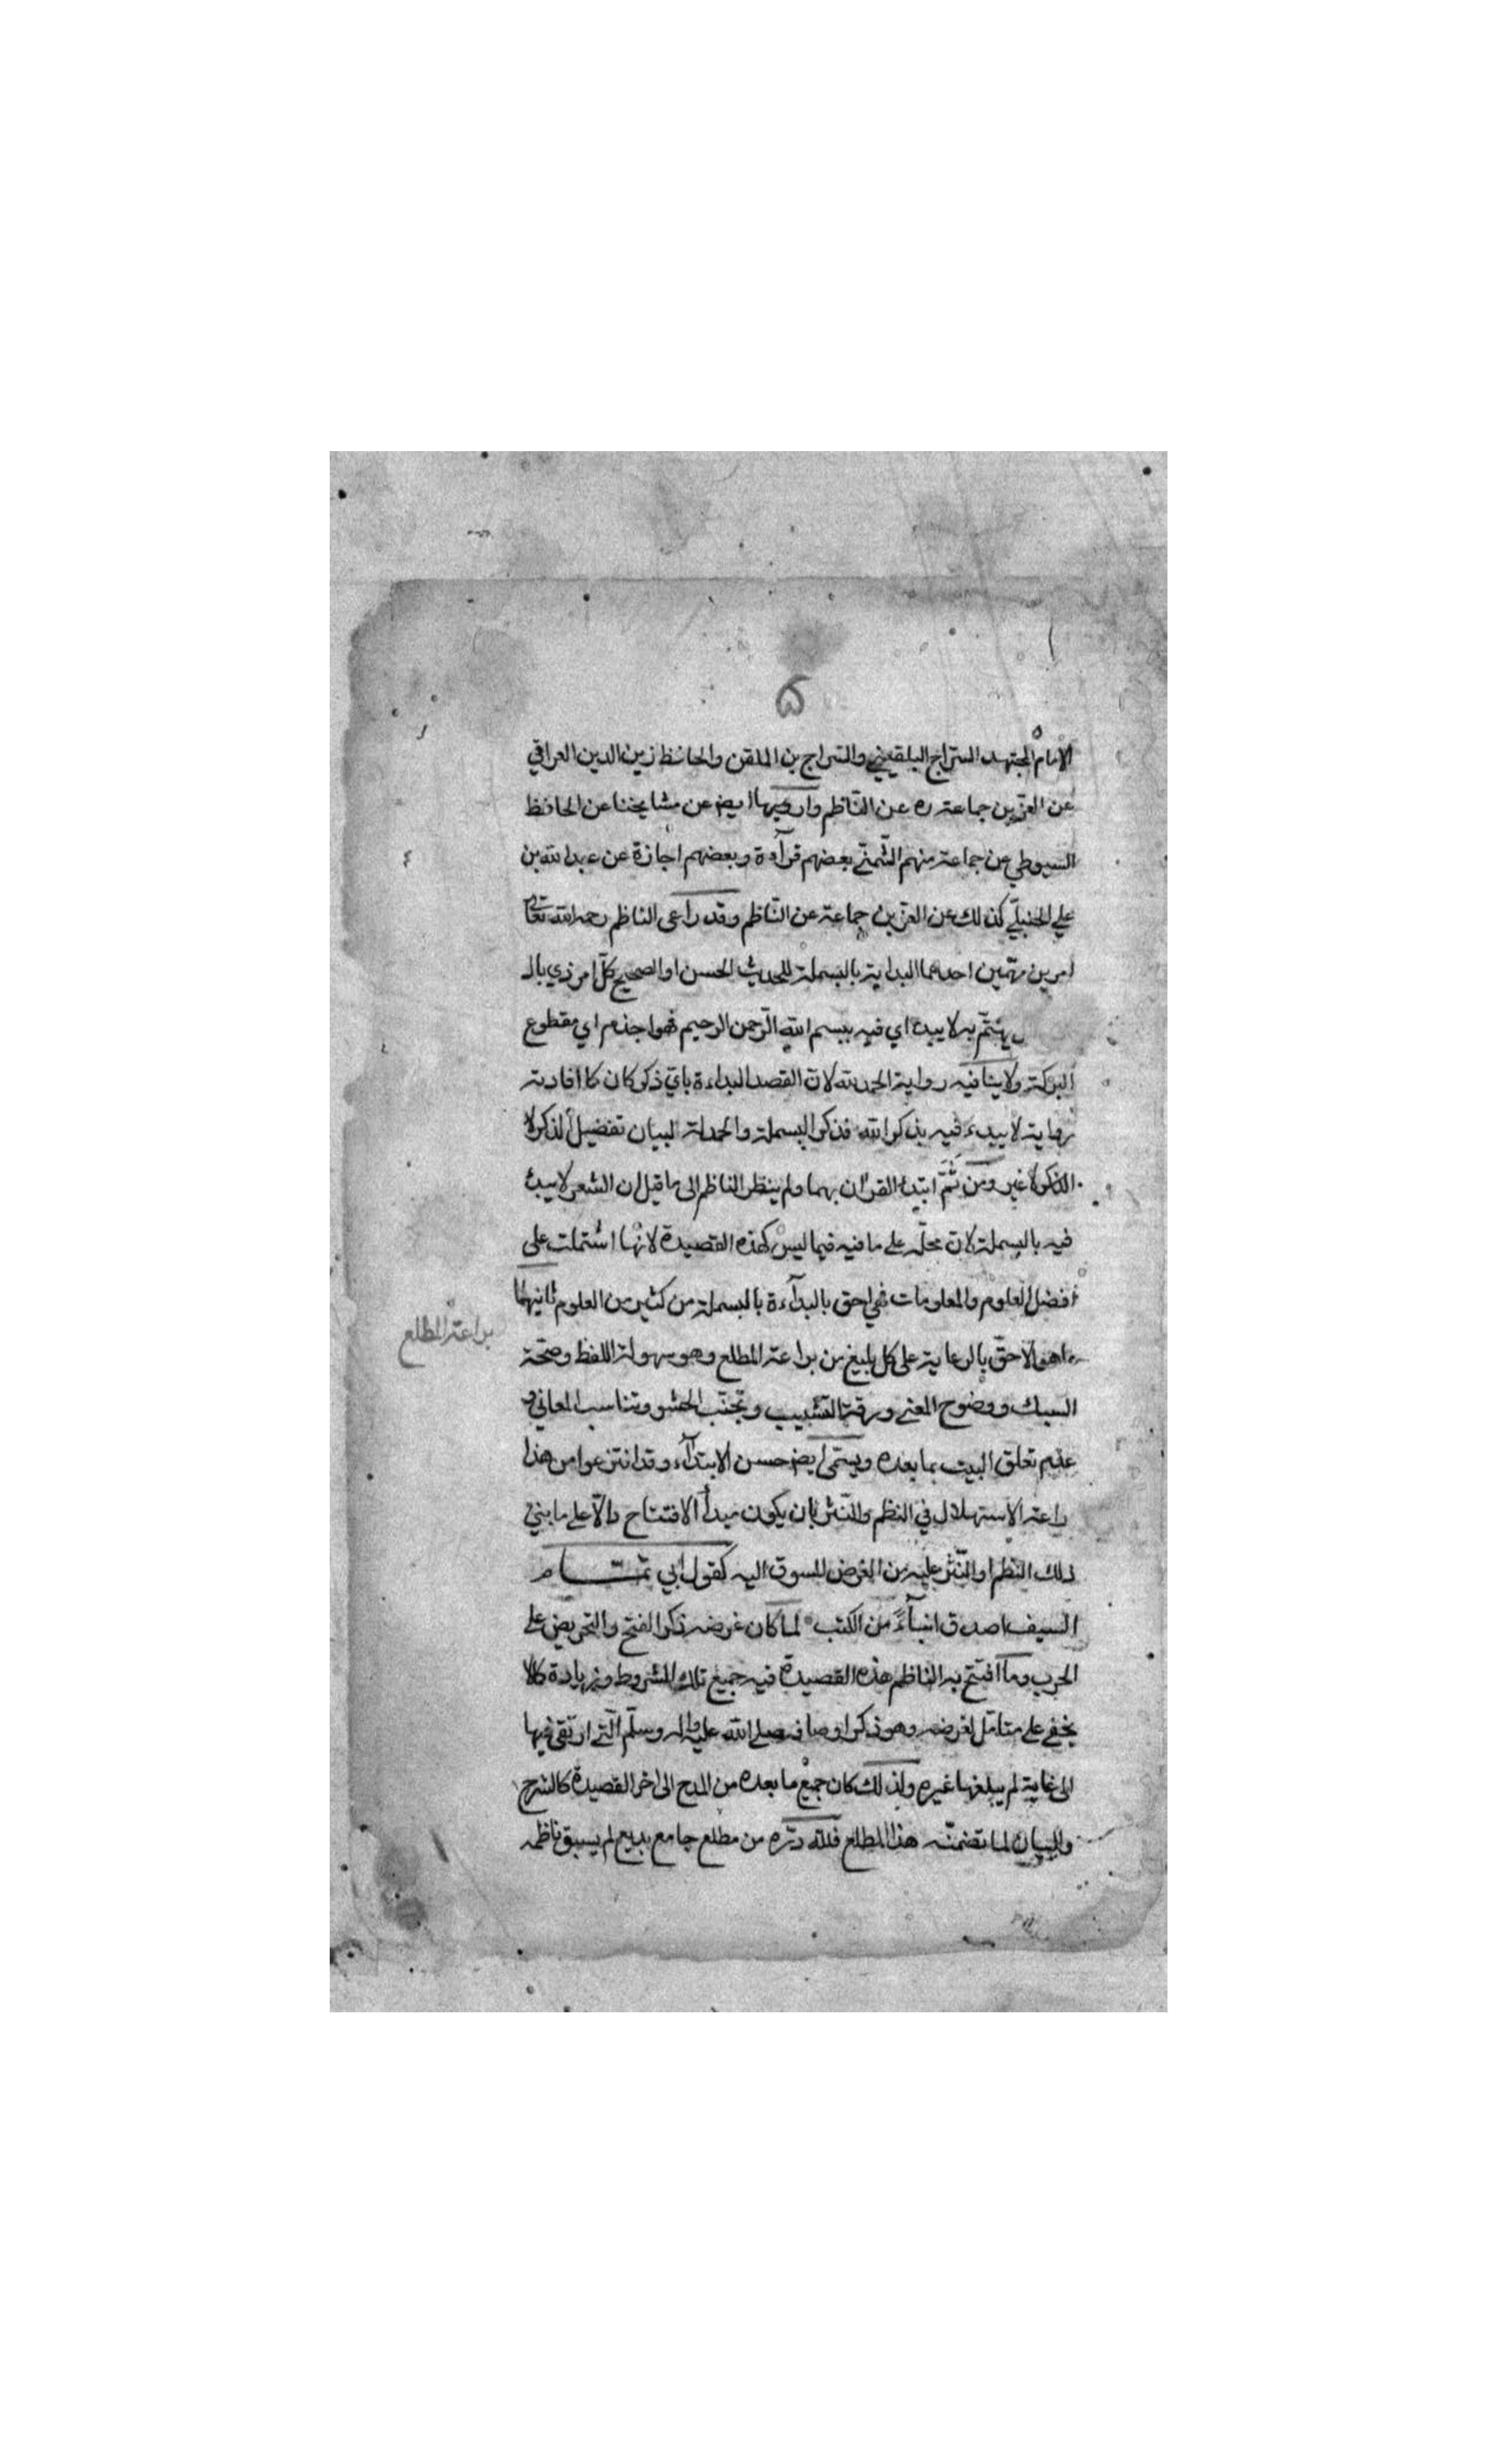 ۵
الامام المجتهد السّراج البلقيني والسّراج بن الملقن والحافظ زين الدين العراقي
عن العزّ بن جماعة ره عن النّاظم وارويها ايض عن مشايخنا عن الحافظ
السيوطي عن جماعة منهم الشّمنّي بعضهم قرآءة وبعضهم اجازة عن عبد الله بن
علي الحنبلّي كذلك عن العزّ بن جماعة عن النّاظم وقد راعى الناظم رحمه الله تعالى
امرين مهمّين احدهما البداية بالبسملة للحديث الحسن او الصحيح كلّ امر ذي بال
يهتمّ به لا يبدء اي فيه ببسم الله الرّحمن الرحيم فهو اجذم اي مقطوع
البركة ولا ينافيه رواية الحمد لله لانّ القصد البداءة بايّ ذكر كان كما افادته
رواية لا يبدء فيه بذكر الله فذكر البسملة والحمدلة لبيان تفضيل الذكر لا
الذكر لا غير ومن ثَمّ ابتدء القرآن بهما ولم ينظر الناظم الى ما قيل ان الشعر لا يبدء
فيه بالبسملة لانّ محلّه على ما فيه فيما ليس كهذه القصيدة لانّها اشتملت على
افضل العلوم والمعلومات فهي احق بالبدآءة بالبسملة من كثير من العلوم ثانيهما
ما هو الاحقّ بالرعاية على كل بليغ من براعة المطلع وهو سهولة اللفظ وصحّة
السبك ووضوح المعنى ورقة التشبيب وتجنّب الحشو وتناسب المعاني و
عدم تعلق البيت بما بعده ويسمّى ايض حسن الابتدآء وقد انتزعوا من هذا
براعة الاستهلال في النظم والنّثر بان يكون مبدأ الافتتاح دالّا على ما بني
ذلك النظم او النّثر عليه من الغرض المسوق اليه كقول ابي تمّام
السيف اصدق انبآءً من الكتب لما كان غرضه ذكر الفتح والتحريض على
الحرب وما افتتح به الناظم هذه القصيدة فيه جميع تلك الشروط وزيادة كما لا
يخفى على متامّل لغرضه وهو ذكر اوصافه صلى الله عليه واله وسلّم الّتي ارتقى فيها
الى غاية لم يبلغها غيره ولذلك كان جميع ما بعده من المدح الى اخر القصيدة كالشرح
والبيان لما تضمنّه هذا المطلع فلله درّه من مطلع جامع بديع لم يسبق ناظمه
براعة المطلع